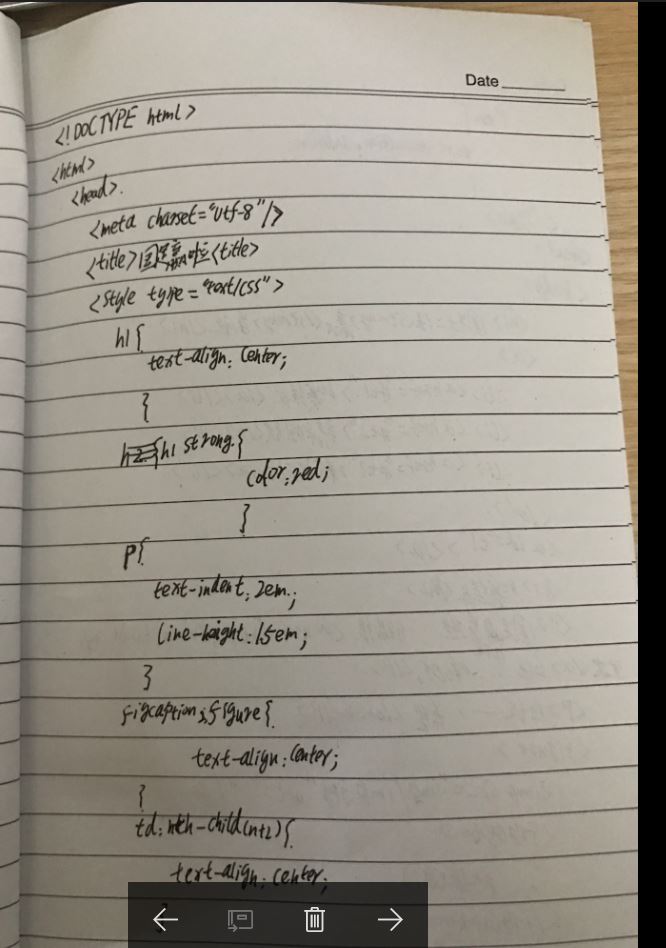 Date
<!DOCTYPE html>
<html>
<head>
<meta charset="utf-8"/>
<title><title>
<style type="text/css">
h1{
text-align: center;
}
h1 strong{
color:red;
}
p{
text-indent: 2em;
line-height: 1.5em;
}
figcaption,figure{
text-align: center;
}
td:nth-child(n+2){
text-align: center;